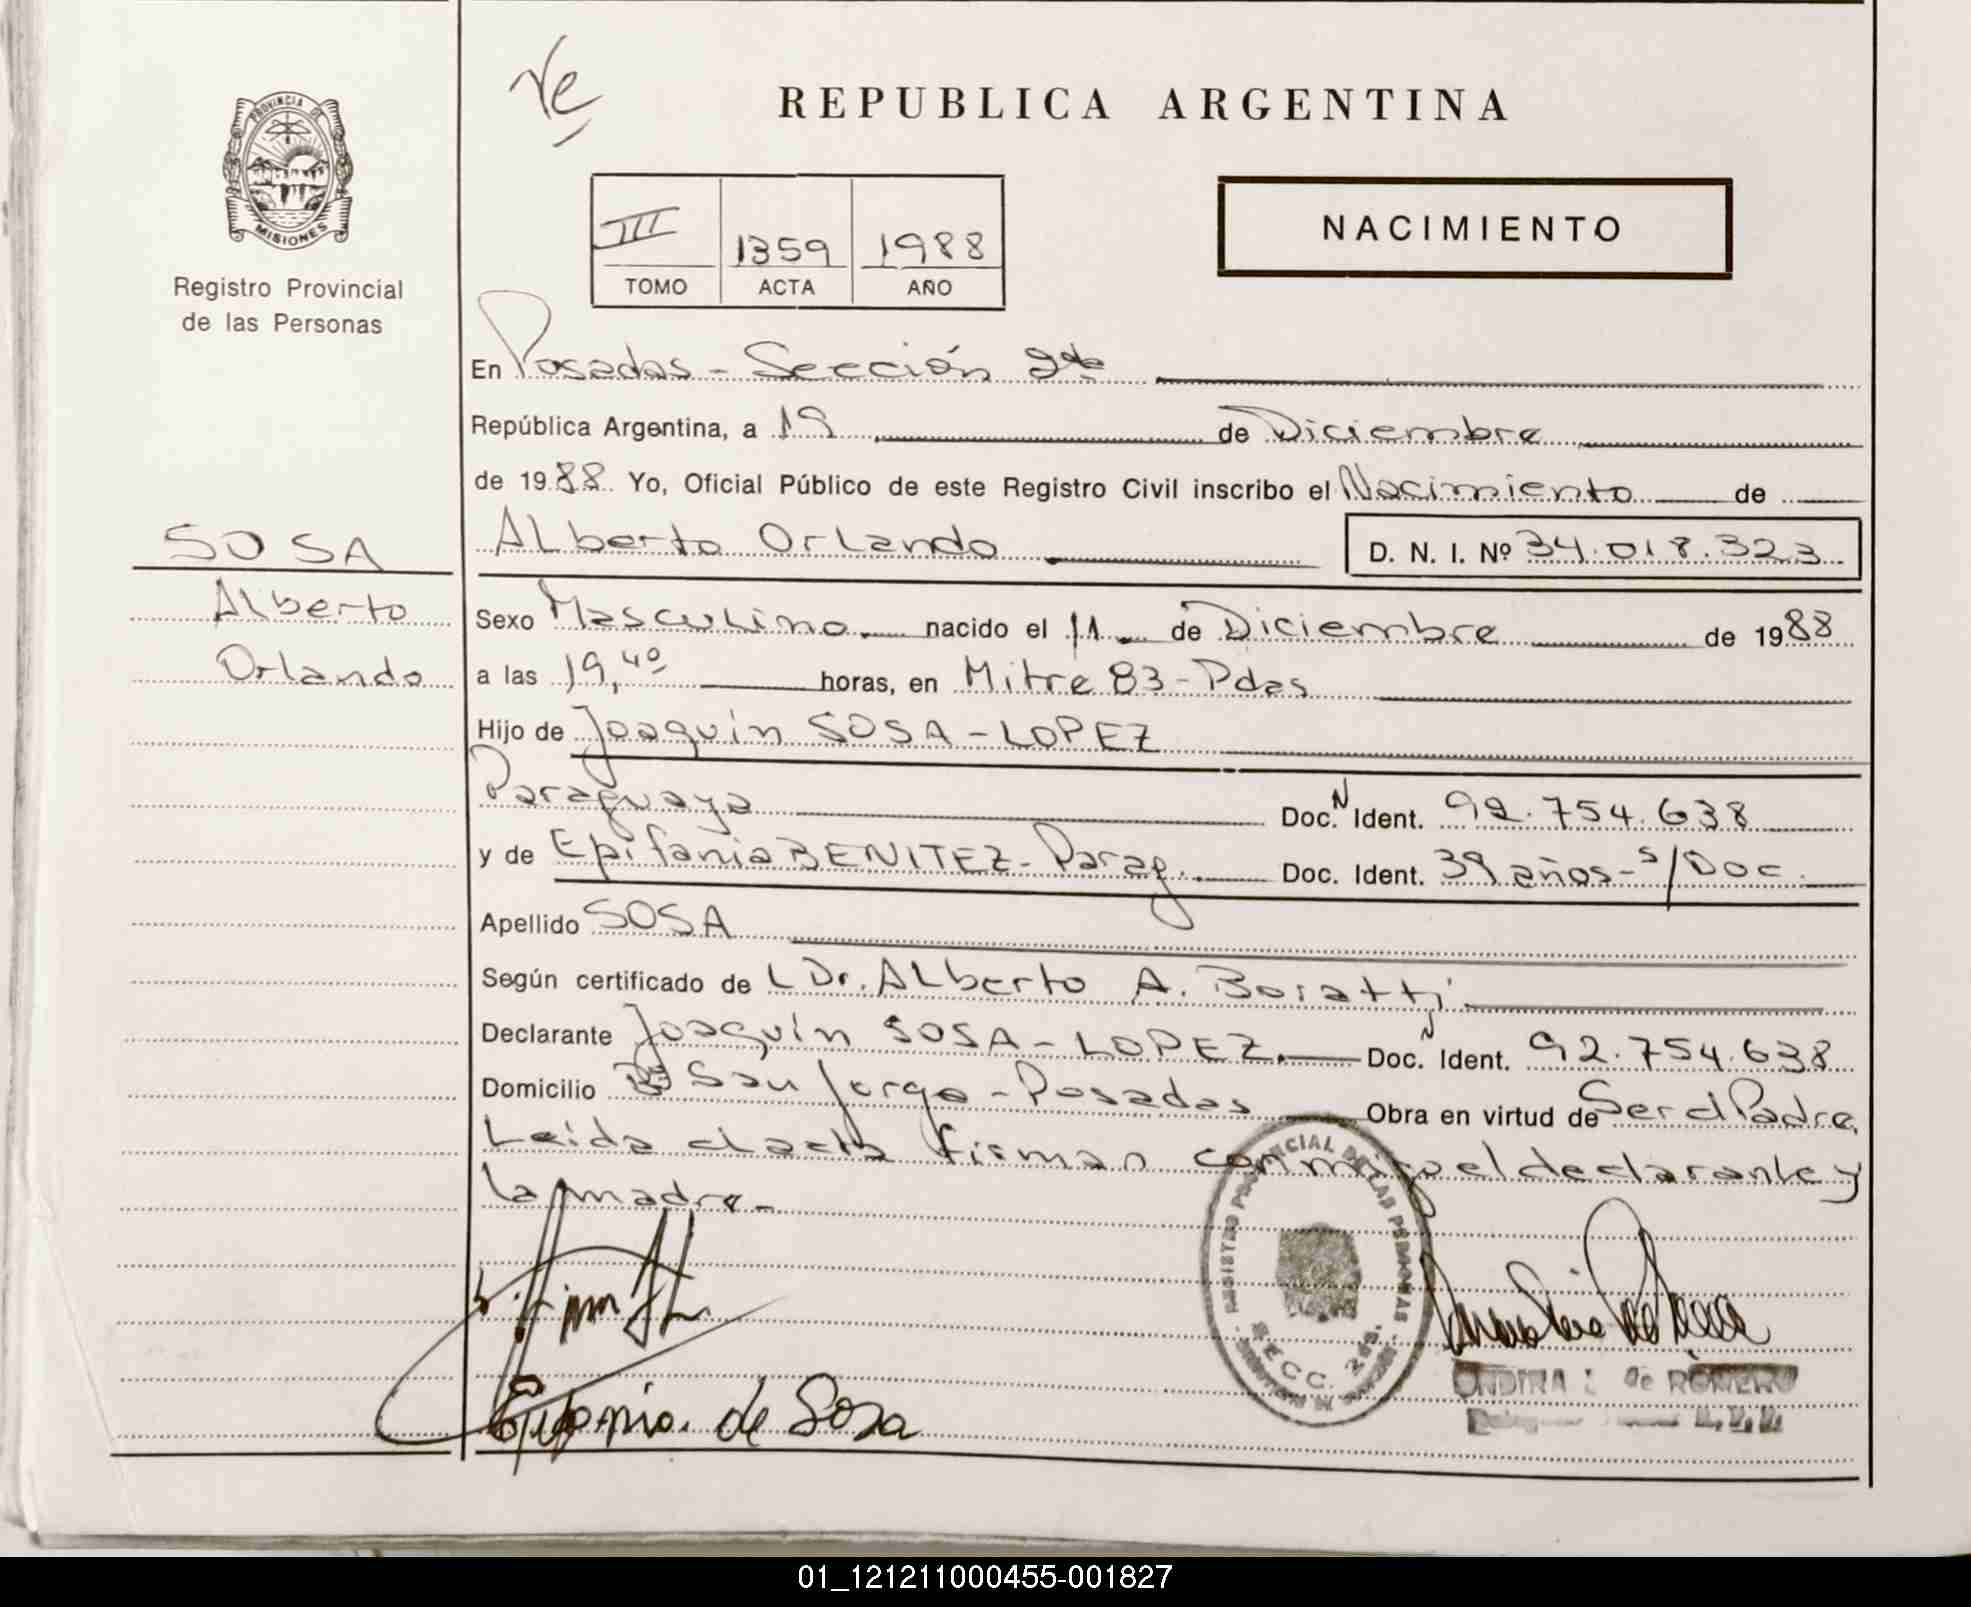 Ve
REPUBLICA ARGENTINA
PROVINCIA DE
MISIONES
Registro Provincial
de las Personas
III 1359 1988
TOMO ACTA AÑO
NACIMIENTO
En Posadas - Sección 2da
República Argentina, a 19 de Diciembre
de 1988 Yo, Oficial Público de este Registro Civil inscribo el Nacimiento de
SOSA
Alberto
Orlando
Alberto Orlando D. N. I. Nº 34.018.323
Sexo Masculino nacido el 11 de Diciembre de 1988
a las 19,40 horas, en Mitre 83 - Pdas
Hijo de Joaquín SOSA - LOPEZ
Paraguaya Doc. N Ident. 92.754.638
y de Epifania BENITEZ - Parag. Doc. Ident. 39 años - s/Doc.
Apellido SOSA
Según certificado de L Dr. Alberto A. Boratti
Declarante Joaquín SOSA - LOPEZ. Doc. N Ident. 92.754.638
Domicilio Bº San Jorge - Posadas Obra en virtud de Ser el Padre.
Leida el acta firman conmigo el declarante y
la madre -
REGISTRO PROVINCIAL DE LAS PERSONAS
SECC. 2da.
Epifania de Sosa
ONDINA de ROMERO
01_121211000455-001827